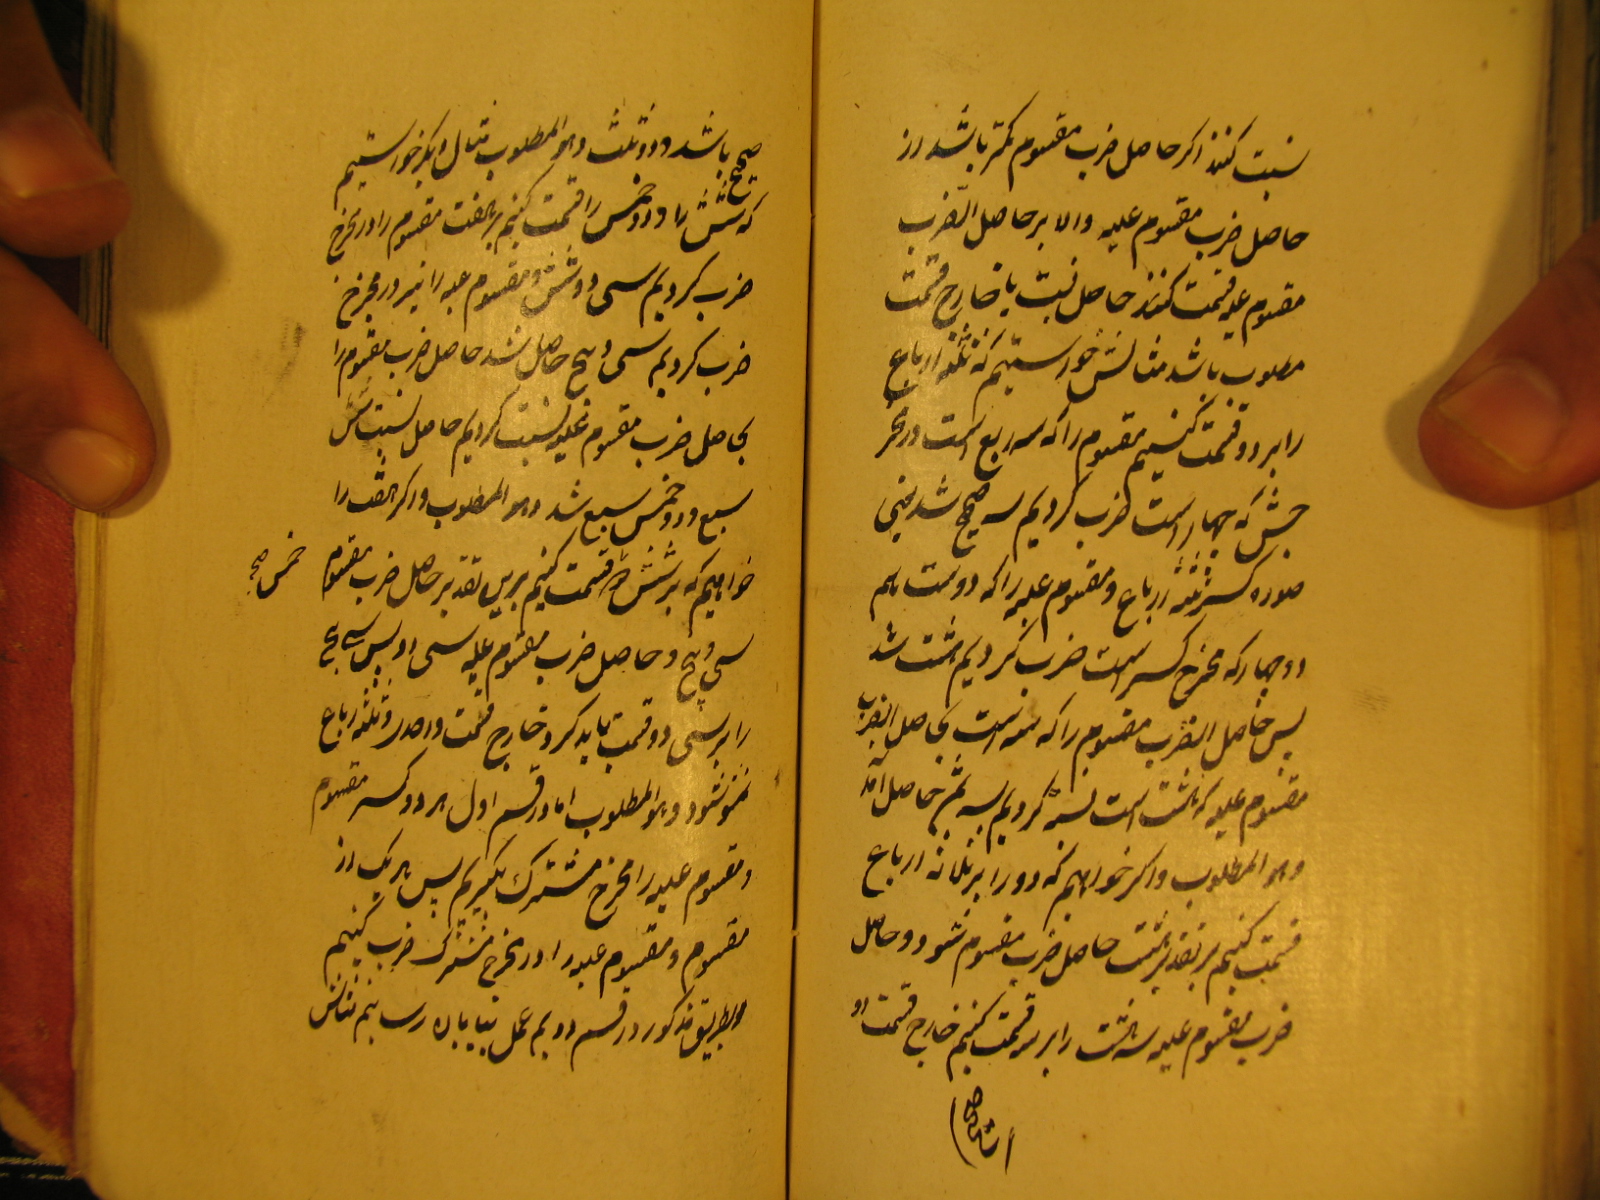 نسبت کنند اگر حاصل ضرب مقسوم کمتر باشد از
حاصل ضرب مقسوم علیه والا بر حاصل الضرب
مقسوم علیه قسمت کنند حاصل نسبت یا خارج قسمت
مطلوب باشد مثالش خواستیم که ثلثه ارباع
را بر دو قسمت کنیم مقسوم را که سه ربع است در مخر
جش که چهار است ضرب کردیم سه صحیح شد یعنی
صوره کسر ثلثه ارباع و مقسوم علیه را که دوست هم
در چهار که مخرج کسر است ضرب کردیم هشت شد
پس حاصل الضرب مقسوم را که سه است بحاصل الضرب
مقسوم علیه که هشت است نسبة کردیم سه ثمن حاصل آمد
وهو المطلوب واکر خواهیم که دو را بر ثلاثه ارباع
قسمت کنیم بر تقدیر هشت حاصل ضرب مقسوم شود و حاصل
ضرب مقسوم علیه سه هشت را بر سه قسمت کنیم خارج قسمت دو
صحیح باشد و دو ثلث وهو المطلوب مثال دیگر خواستیم
که شش را و دو خمس را قسمت کنیم بر هفت مقسوم را در مخرج
ضرب کردیم سی و دو شش و مقسوم علیه را نیز در مخرج
ضرب کردیم سی و پنج حاصل شد حاصل ضرب مقسوم را
بحاصل ضرب مقسوم علیه نسبت کردیم حاصل نسبت شش
سبع و دو خمس سبع شد وهو المطلوب واکر هفت را
خواهیم که بر شش و دو قسمت کنیم برین تقدیر حاصل ضرب مقسوم
خمس صح
سی و پنج و حاصل ضرب مقسوم علیه سی و دو پس سی و پنج
را بر سی و دو قسمت باید کرد و خارج قسمت واحد و ثلثه ارباع
ثمن شود وهو المطلوب اما در قسم اول هر دو کسر مقسوم
و مقسوم علیه را مخرج مشترک بگیریم پس هر یک از
مقسوم و مقسوم علیه را در مخرج مشترک ضرب کنیم
وبطریق مذکور در قسم دویم عمل بپایان رسانیم مثالش